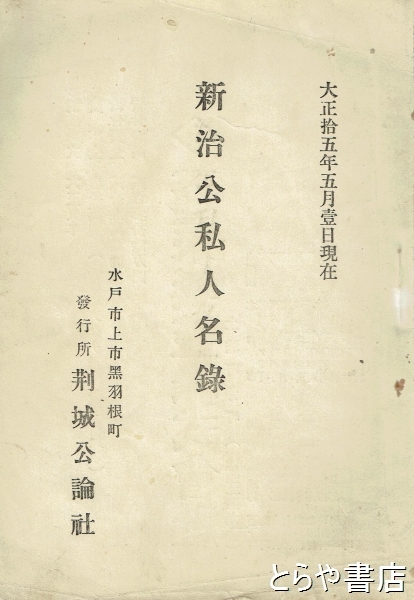 大正拾五年五月壹日現在
新治公私人名錄
水戶市上市黑羽根町
發行所 荆城公論社
とらや書店